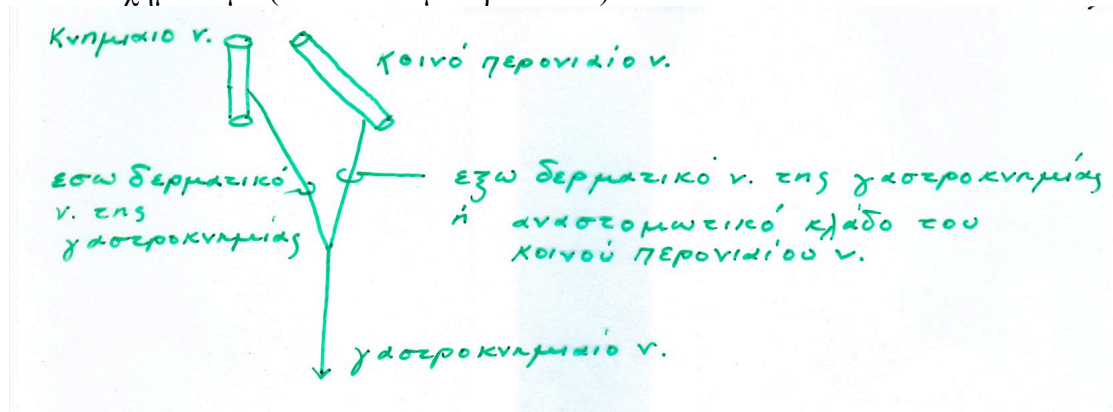 κνημιαιο ν.
κοινό περονιαίο ν.
εσω δερματικό
ν. της
γαστροκνημίας
εξω δερματικό ν. της γαστροκνημίας
ή αναστομωτικό κλάδο του
κοινού περονιαίου ν.
γαστροκνημιαιό ν.